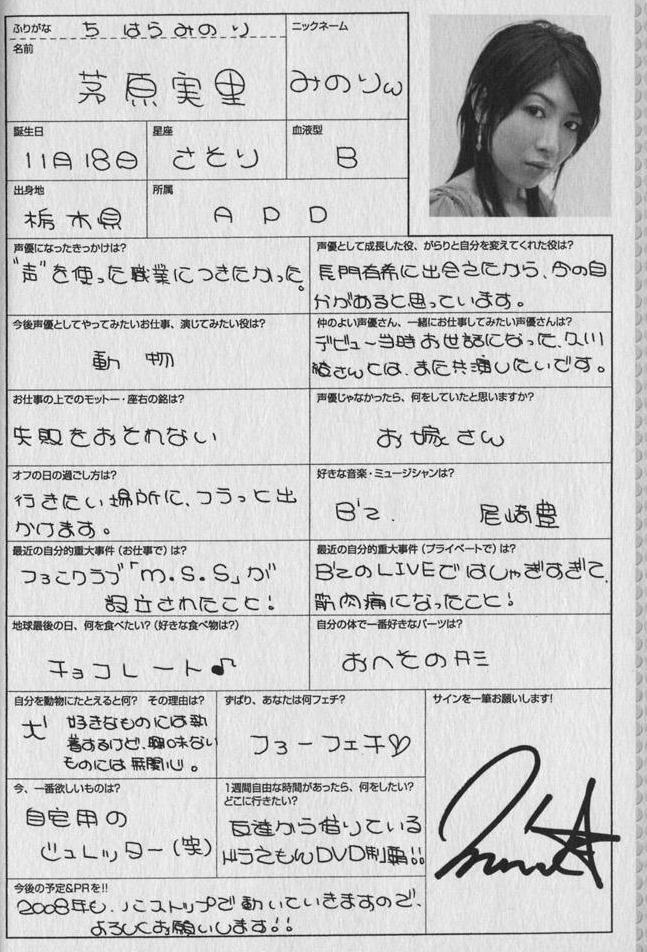 ふりがな ちはらみのり
ニックネーム
名前
茅原実里
みのりん
誕生日
星座
血液型
11月18日
さそり
B
出身地
所属
栃木県
APD
声優になったきっかけは?
"声"を使った職業につきたかった。
声優として成長した役、がらりと自分を変えてくれた役は?
長門有希に出会えたから、今の自
分があると思っています。
今後声優としてやってみたいお仕事、演じてみたい役は?
動物
仲のよい声優さん、一緒にお仕事してみたい声優さんは?
デビュー当時お世話になった、久川
綾さんとは、また共演したいです。
お仕事の上でのモットー・座右の銘は?
失敗をおそれない
声優じゃなかったら、何をしていたと思いますか?
お嫁さん
オフの日の過ごし方は?
行きたい場所に、フラっと出
かけます。
好きな音楽・ミュージシャンは?
B'z. 尾崎豊
最近の自分的重大事件(お仕事で)は?
ファンクラブ「M.S.S」が
設立されたこと!
最近の自分的重大事件(プライベートで)は?
B'zのLIVEではしゃぎすぎて、
筋肉痛になったこと!
地球最後の日、何を食べたい?(好きな食べ物は?)
チョコレート♪
自分の体で一番好きなパーツは?
おへその形
自分を動物にたとえると何? その理由は?
犬 好きなものには執
着するけど、興味ない
ものには無関心。
ずばり、あなたは何フェチ?
フェチ♡
サインを一筆お願いします!
今、一番欲しいものは?
自宅用の
ビューレッター(笑)
1週間自由な時間があったら、何をしたい?
どこに行きたい?
友達から借りている
ドラえもんDVD制覇!!
今後の予定&PRを!!
2008年も、ノンストップで動いていきますので、
よろしくお願いします!!